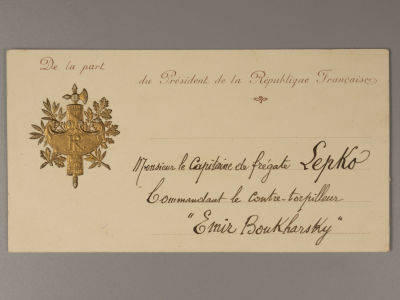 De la part
du Président de la République Française
RF
Monsieur le Capitaine de frégate Lepko
Commandant le contre-torpilleur
"Emir Boukharsky"